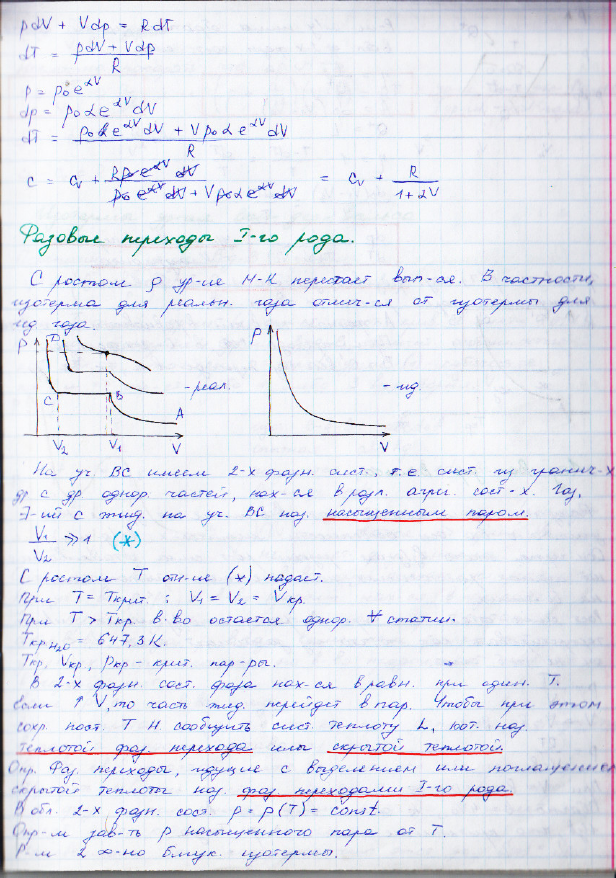 pdV + Vdp = RdT
dT = (pdV + Vdp)/R
p = p₀e^αV
dp = p₀αe^αV dV
dT = (p₀αe^αV dV + Vp₀αe^αV dV)/R
c = c_V + (Rp₀e^αV dV)/(p₀e^αV dV + Vp₀αe^αV dV) = c_V + R/(1+αV)
Фазовые переходы I-го рода.
С ростом ρ ур-ие М-К перестаёт вып-ся. В частности,
изотерма для реальн. газа отлич-ся от изотермы для
ид. газа.
P D C B A V₂ V₁ V - реал.
P V - ид.
На уч. BC имеем 2-х фазн. сист., т.е. сист. из гранич-х
др с др однор. частей, нах-ся в разл. агрег. сост-х. Газ,
на уч. BC наз. насыщенным паром.
V₁/V₂ ≫ 1 (*)
С ростом T отн-ие (*) падает.
При T = Tкрит. : V₁ = V₂ = Vкр.
При T > Tкр. в-во остаётся однор. ∀ статич.
Tкр H₂O = 647,3 K.
Tкр, Vкр, ркр - крит. пар-ры.
В 2-х фазн. сост. фаза нах-ся в равн. при один. T.
Если ↑ V, то часть жид. перейдёт в пар. Чтобы при этом
сохр. пост. T н. сообщить сист. теплоту L, кот. наз.
теплотой фаз. перехода или скрытой теплотой.
Опр. Фаз. переходы, идущие с выделением или поглощением
скрытой теплоты наз. фаз. переходами I-го рода.
В обл. 2-х фазн. сост. p = p(T) = const.
Опр-м зав-ть p насыщенного пара от T.
Р-м 2 ∞-но близк. изотермы.